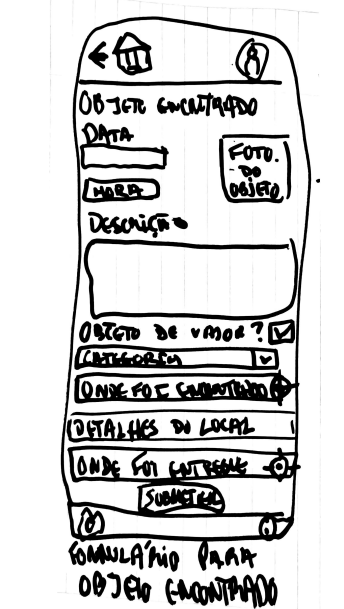 OBJETO ENCONTRADO
DATA
FOTO.
DO
OBJETO
HORA
DESCRIÇÃO
OBJETO DE VALOR?
CATEGORIA
ONDE FOI ENCONTRADO
DETALHES DO LOCAL
ONDE FOI ENTREGUE
SUBMETER
FORMULÁRIO PARA
OBJETO ENCONTRADO